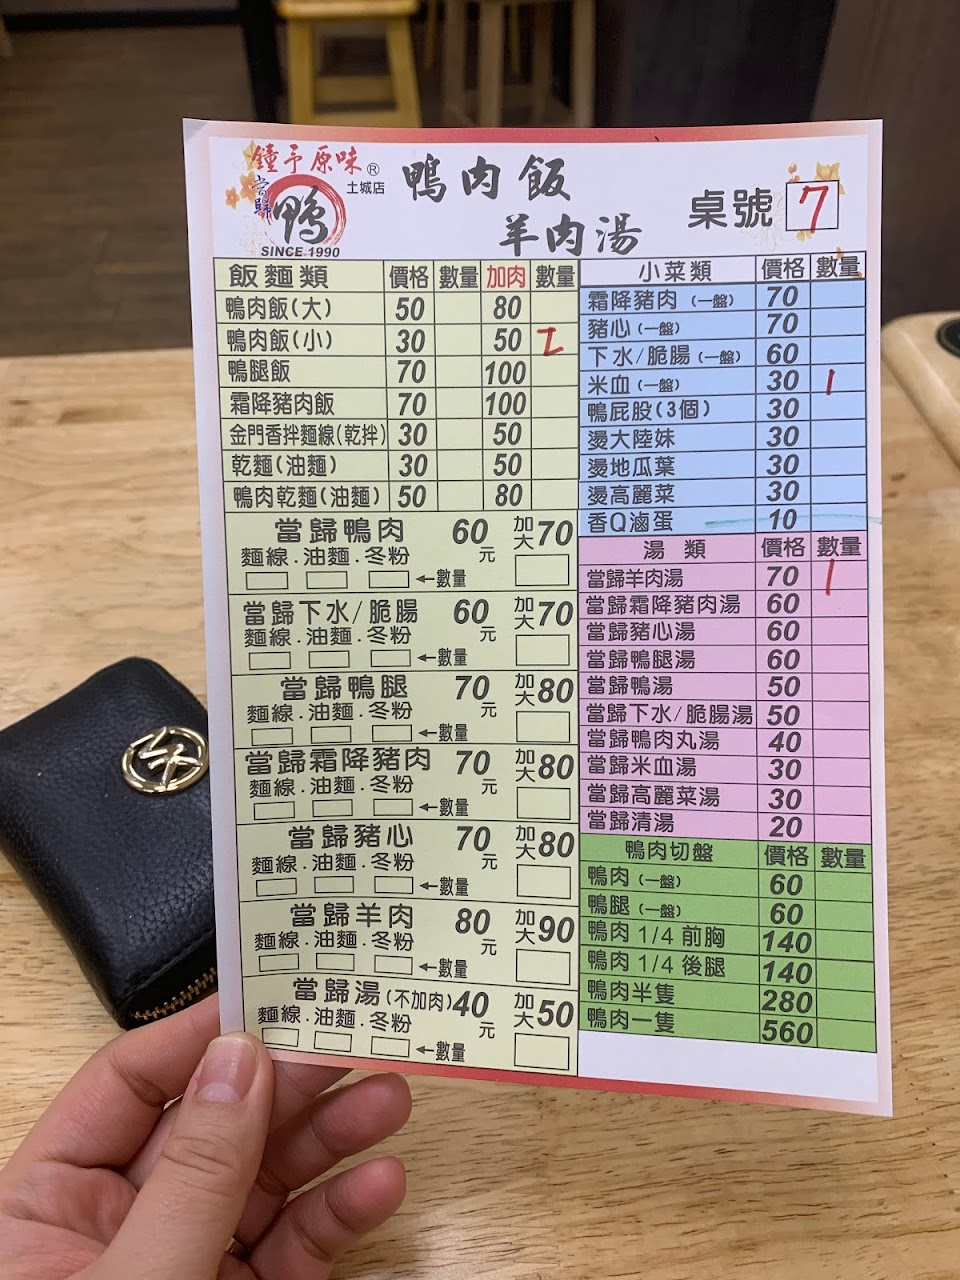 鐘予原味®
土城店
當歸
鴨
SINCE.1990
鴨肉飯
羊肉湯
桌號 7
飯麵類 價格 數量 加肉 數量
鴨肉飯(大) 50 80
鴨肉飯(小) 30 50 2
鴨腿飯 70 100
霜降豬肉飯 70 100
金門香拌麵線(乾拌) 30 50
乾麵(油麵) 30 50
鴨肉乾麵(油麵) 50 80
當歸鴨肉 60元 加大70
麵線.油麵.冬粉
←數量
當歸下水/脆腸 60元 加大70
麵線.油麵.冬粉
←數量
當歸鴨腿 70元 加大80
麵線.油麵.冬粉
←數量
當歸霜降豬肉 70元 加大80
麵線.油麵.冬粉
←數量
當歸豬心 70元 加大80
麵線.油麵.冬粉
←數量
當歸羊肉 80元 加大90
麵線.油麵.冬粉
←數量
當歸湯(不加肉)40元 加大50
麵線.油麵.冬粉
←數量
小菜類 價格 數量
霜降豬肉(一盤) 70
豬心(一盤) 70
下水/脆腸(一盤) 60
米血(一盤) 30 1
鴨屁股(3個) 30
燙大陸妹 30
燙地瓜葉 30
燙高麗菜 30
香Q滷蛋 10
湯類 價格 數量
當歸羊肉湯 70 1
當歸霜降豬肉湯 60
當歸豬心湯 60
當歸鴨腿湯 60
當歸鴨湯 50
當歸下水/脆腸湯 50
當歸鴨肉丸湯 40
當歸米血湯 30
當歸高麗菜湯 30
當歸清湯 20
鴨肉切盤 價格 數量
鴨肉(一盤) 60
鴨腿(一盤) 60
鴨肉1/4前胸 140
鴨肉1/4後腿 140
鴨肉半隻 280
鴨肉一隻 560